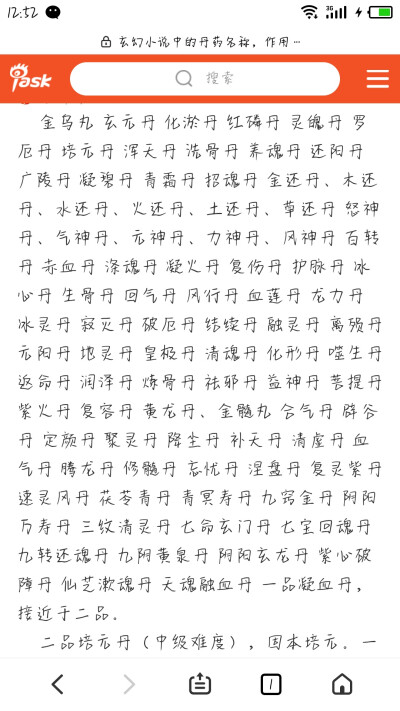 12:52
3G
玄幻小说中的丹药名称，作用…
iask
搜索
金乌丸 玄元丹 化淤丹 红磷丹 灵魄丹 罗
厄丹 培元丹 浑天丹 洗骨丹 养魂丹 还阳丹
广陵丹 凝碧丹 青霜丹 招魂丹 金还丹、木还
丹、水还丹、火还丹、土还丹、草还丹 怒神
丹、气神丹、元神丹、力神丹、风神丹 百转
丹 赤血丹 涤魂丹 凝火丹 复伤丹 护脉丹 冰
心丹 生骨丹 回气丹 风行丹 血莲丹 龙力丹
冰灵丹 寂灭丹 破厄丹 结续丹 融灵丹 离殒丹
元阳丹 地灵丹 皇极丹 清魂丹 化形丹 噬生丹
返命丹 润泽丹 炼骨丹 祛邪丹 益神丹 菩提丹
紫火丹 复容丹 黄龙丹、金髓丸 合气丹 辟谷
丹 定颜丹 聚灵丹 降尘丹 补天丹 清虚丹 血
气丹 腾龙丹 修髓丹 忘忧丹 涅盘丹 复灵紫丹
速灵风丹 茯苓青丹 青冥寿丹 九窍金丹 阴阳
万寿丹 三纹清灵丹 七命玄门丹 七宝回魂丹
九转还魂丹 九阴黄泉丹 阴阳玄龙丹 紫心破
障丹 仙芝漱魂丹 天魂融血丹 一品凝血丹，
接近于二品。
二品培元丹（中级难度），固本培元。一
1